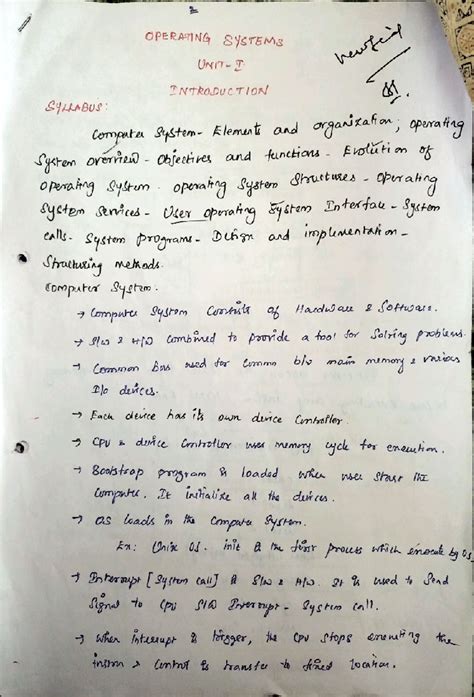 OPERATING SYSTEMS
UNIT-I
INTRODUCTION
SYLLABUS:
Computer System - Elements and organization; operating
System overview - Objectives and functions - Evolution of
operating System. operating System Structures - Operating
System Services - User operating System Interface - System
calls - System programs - Design and implementation -
Structuring methods.
Computer System:
→ Computer System Consists of Hardware & Software.
→ S/w & H/w combined to provide a tool for Solving problems.
→ Common bus used for Commn b/w main memory & various
I/o devices.
→ Each device has its own device Controller.
→ CPU & device Controller uses memory cycle for execution.
→ Bootstrap program is loaded when user Start the
Computer. It initialize all the devices.
→ OS loads in the Computer System.
Ex: Unix OS. init is the first process which by OS
→ Interrupt [System call] & S/w & H/w. It is used to Send
Signal to CPU S/w Interrupt - System call.
→ when interrupt is trigger, the CPU stops executing the
instrn & Control is transfer to fixed location.